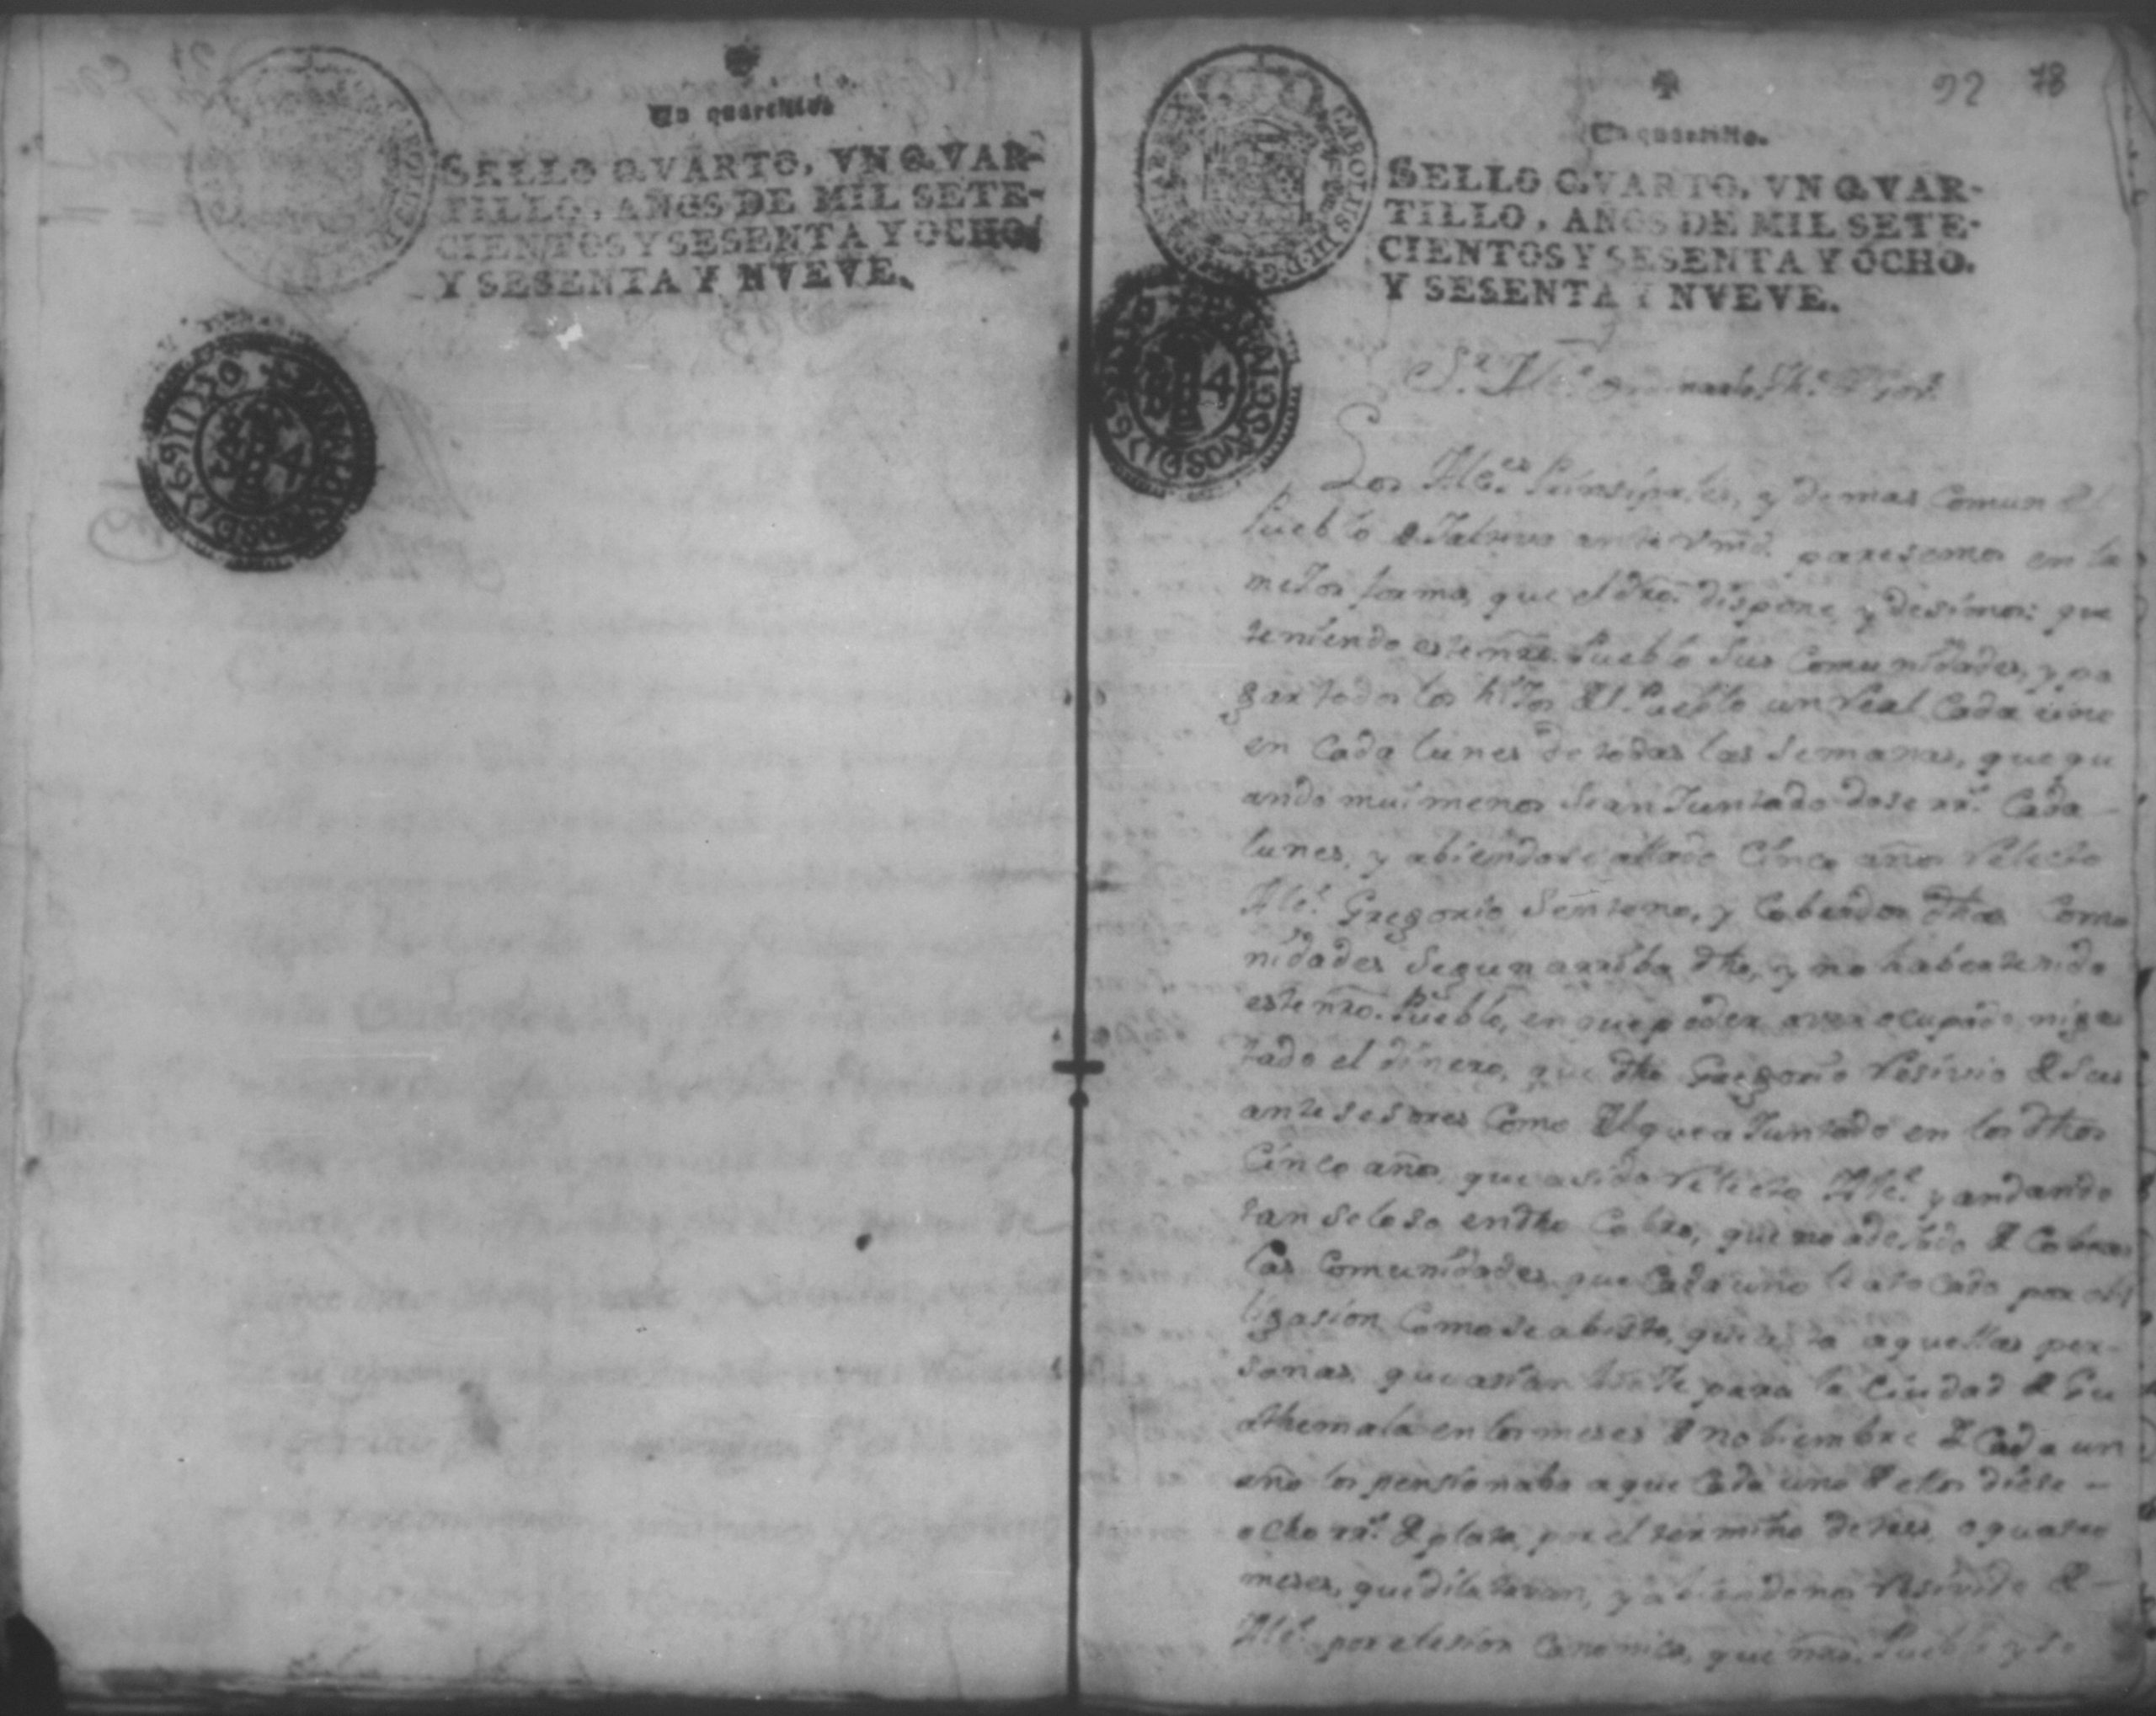 Un quartillo
SELLO QVARTO, VN QVAR-
TILLO, AÑOS DE MIL SETE-
CIENTOS Y SESENTA Y OCHO.
Y SESENTA Y NVEVE.
92 78
Un quartillo.
SELLO QVARTO, VN QVAR-
TILLO, AÑOS DE MIL SETE-
CIENTOS Y SESENTA Y OCHO.
Y SESENTA Y NVEVE.
CAROLUS III D.G.
Sr. Alce. Ordinario
Los Alces. Prinsipales, y demas Comun del
Pueblo de ante Vmd. paresemos en la
mejor forma, que el dro. dispone, y desimos: que
teniendo este nro. Pueblo sus Comunidades, y pa
gar todos los hijos del Pueblo un Real Cada uno
en Cada lunes de todas las Semanas, que qu
ando mui menos sean Juntado dose rrs. Cada
lunes, y abiendose allado Cinco años Relecto
Alce. Gregorio Senteno, y Cobrados dhas Comu
nidades Segun arriba dho, y no haber tenido
este nro. Pueblo, en que poder aver ocupado ni gas
tado el dinero, que dho Gregorio Resivio de Sus
antesesores Como del que a Juntado en los dhos
Cinco años, que a sido Relecto Alce. y andando
tan Seloso en dho Cobro, que no a dejado de Cobrar
las Comunidades que Cada uno le a tocado por obl
ligasion Como se a bisto, que asta aquellas per-
sonas que asian biaje para la Ciudad de Gu
athemala en los meses de nobiembre de Cada un
año los pensionaba a que Cada uno de ellos diese
ocho rrs. de plata, por el termino de tres, o quatro
meses, que dilataban, y abiendonos Resivido de
Alce. por elesion Canonica, que nro. Pueblo